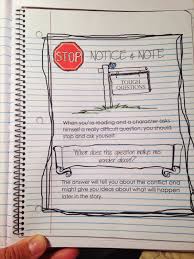 STOP
NOTICE & NOTE
TOUGH
QUESTIONS
When you're reading and a character asks
himself a really difficult question, you should
stop and ask yourself:
"What does this question make me
wonder about?"
The answer will tell you about the conflict and
might give you ideas about what will happen
later in the story.